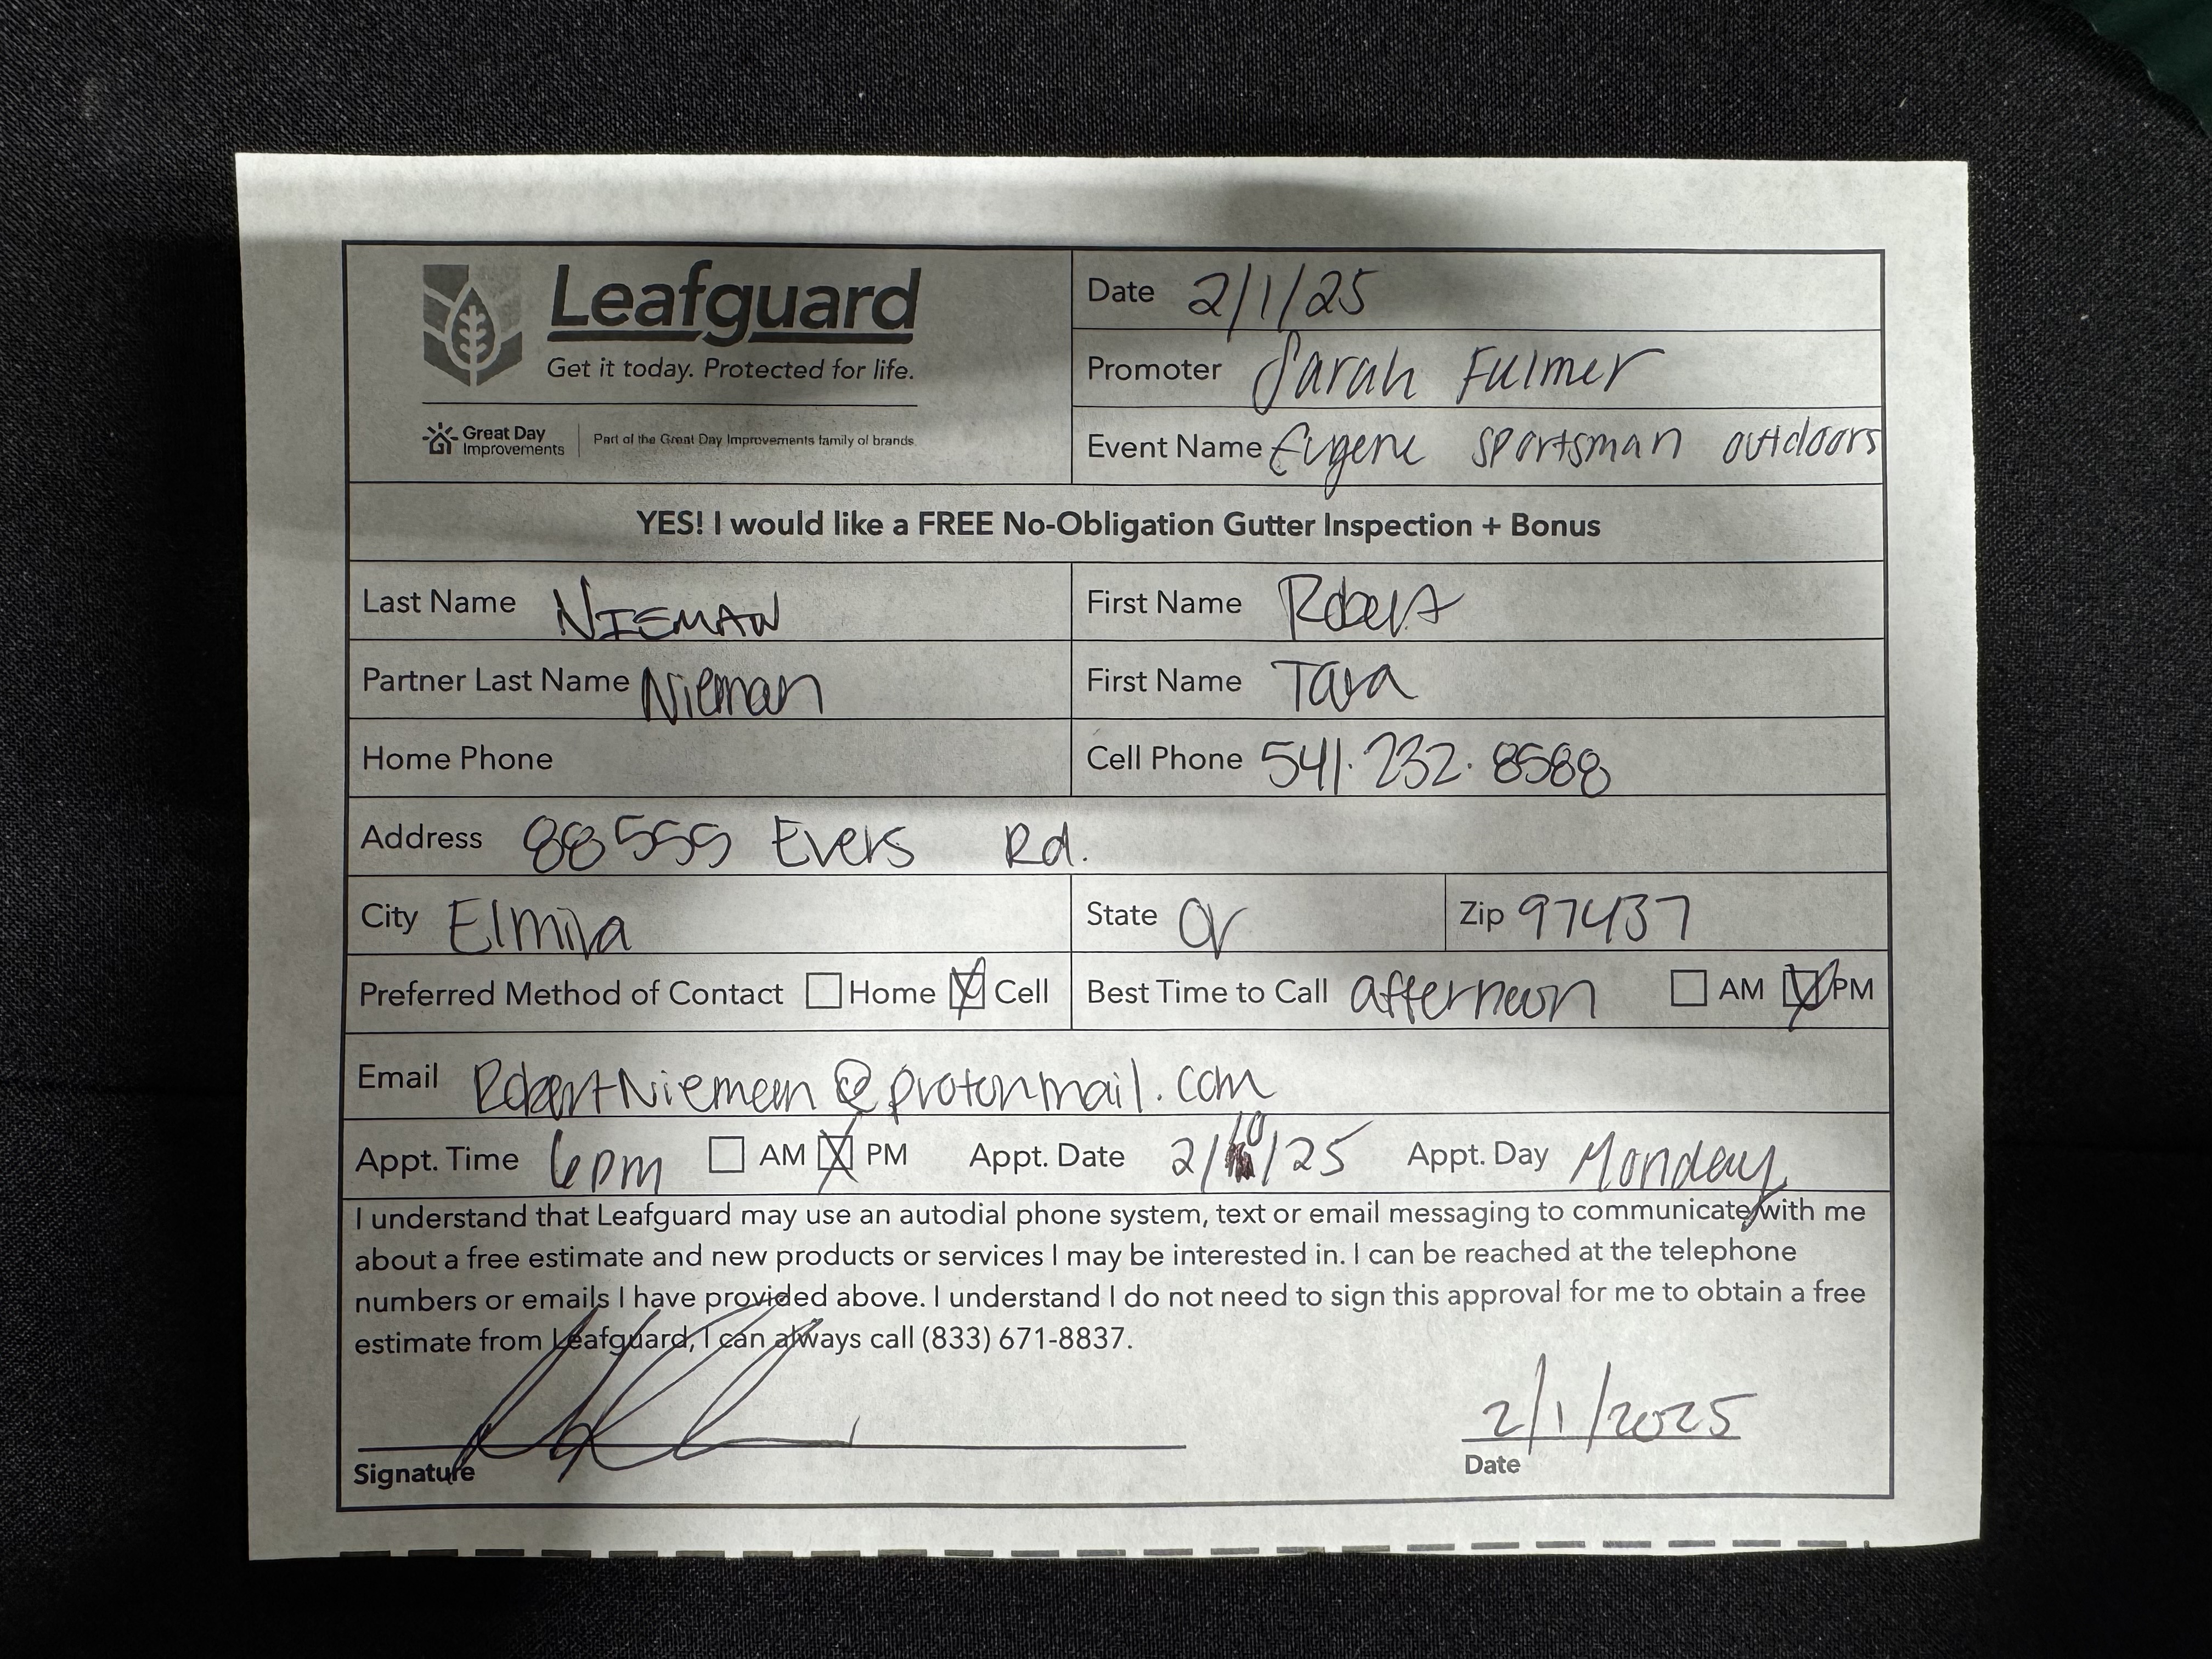 Leafguard
Get it today. Protected for life.
Great Day Improvements | Part of the Great Day Improvements family of brands
Date 2/1/25
Promoter Sarah Fulmer
Event Name Eugene sportsman outdoors
YES! I would like a FREE No-Obligation Gutter Inspection + Bonus
Last Name NIEMAN First Name Robert
Partner Last Name Nieman First Name Tara
Home Phone Cell Phone 541.232.8588
Address 88555 Evers Rd.
City Elmira State Or Zip 97437
Preferred Method of Contact Home Cell Best Time to Call afternoon AM PM
Email RobertNiemen@protonmail.com
Appt. Time 6pm AM PM Appt. Date 2/10/25 Appt. Day Monday
I understand that Leafguard may use an autodial phone system, text or email messaging to communicate with me
about a free estimate and new products or services I may be interested in. I can be reached at the telephone
numbers or emails I have provided above. I understand I do not need to sign this approval for me to obtain a free
estimate from Leafguard, I can always call (833) 671-8837.
2/1/2025
Signature Date